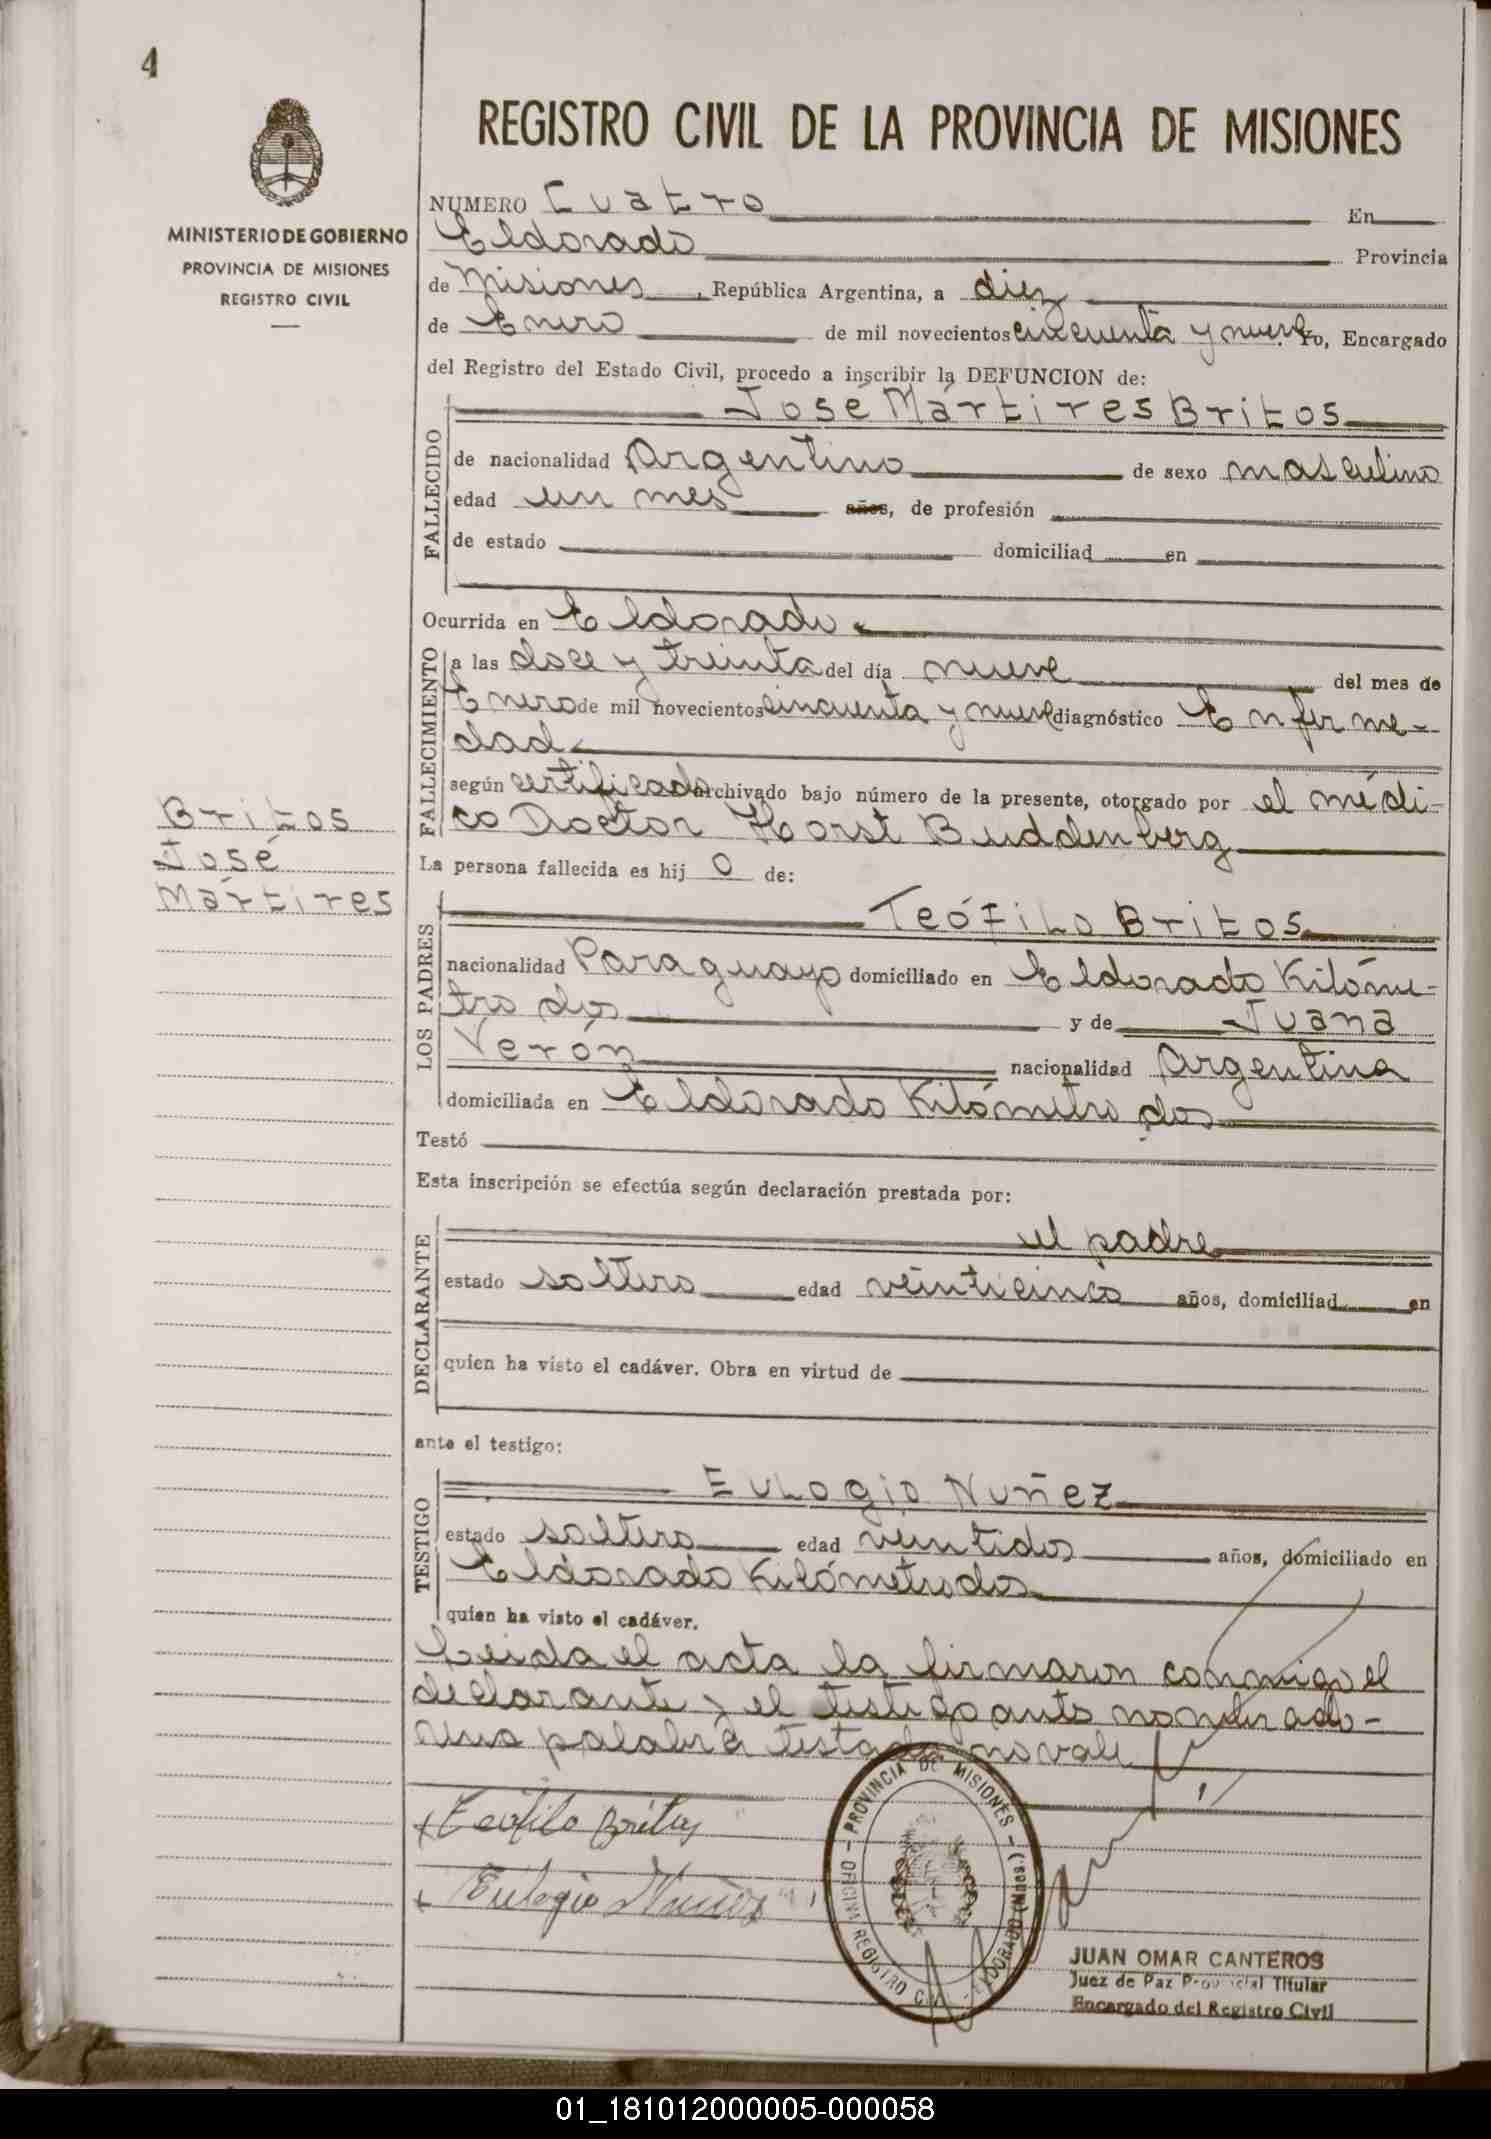 4
MINISTERIO DE GOBIERNO
PROVINCIA DE MISIONES
REGISTRO CIVIL
REGISTRO CIVIL DE LA PROVINCIA DE MISIONES
NUMERO Cuatro En
Eldorado Provincia
de Misiones, República Argentina, a diez
de Enero de mil novecientos cincuenta y nueve Yo, Encargado
del Registro del Estado Civil, procedo a inscribir la DEFUNCION de:
FALLECIDO
José Mártires Britos
de nacionalidad Argentino de sexo masculino
edad un mes años, de profesión
de estado domiciliad en
Ocurrida en Eldorado
FALLECIMIENTO
a las doce y treinta del día nueve del mes de
Enero de mil novecientos cincuenta y nueve diagnóstico Enferme-
dad
según certificado archivado bajo número de la presente, otorgado por el médi-
co Doctor Horst Buddenberg
La persona fallecida es hij o de:
Britos
José
Mártires
LOS PADRES
Teófilo Britos
nacionalidad Paraguayo domiciliado en Eldorado Kilóme-
tro dos y de Juana
Verón nacionalidad Argentina
domiciliada en Eldorado Kilómetro dos
Testó
Esta inscripción se efectúa según declaración prestada por:
DECLARANTE
el padre
estado soltero edad veinticinco años, domiciliad en
quien ha visto el cadáver. Obra en virtud de
ante el testigo:
TESTIGO
Eulogio Nuñez
estado soltero edad veintidos años, domiciliado en
Eldorado Kilómetro dos
quien ha visto el cadáver.
Leida el acta la firmaron conmigo el
declarante y el testigo antes nombrado-
Una palabra testada no vale
Teófilo Britos
Eulogio Nuñez
PROVINCIA DE MISIONES - ELDORADO (Mnes.) - OFICINA REGISTRO CIVIL
JUAN OMAR CANTEROS
Juez de Paz Provincial Titular
Encargado del Registro Civil
01_181012000005-000058